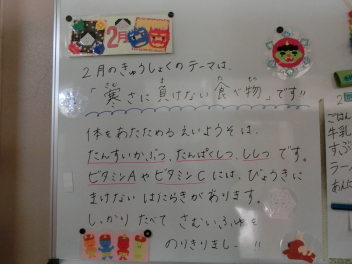 2月
2月のきゅうしょくのテーマは、
「寒さに負けない食べ物」です!!
体をあたためるえいようそは、
たんすいかぶつ、たんぱくしつ、ししつです。
ビタミンAやビタミンCには、びょうきに
まけないはたらきがあります。
しっかりたべてさむいふゆを
のりきりましょー!!
ごはん
牛乳